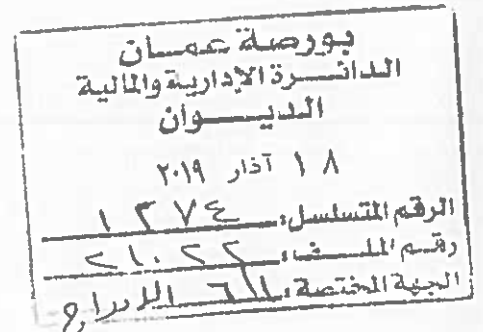 بورصة عمان
الدائرة الإدارية والمالية
الديوان
١٨ آذار ٢٠١٩
الرقم المتسلسل: ١٢٧٤
رقم الملف: ٢١٠٢٢
الجهة المختصة: الإدراج